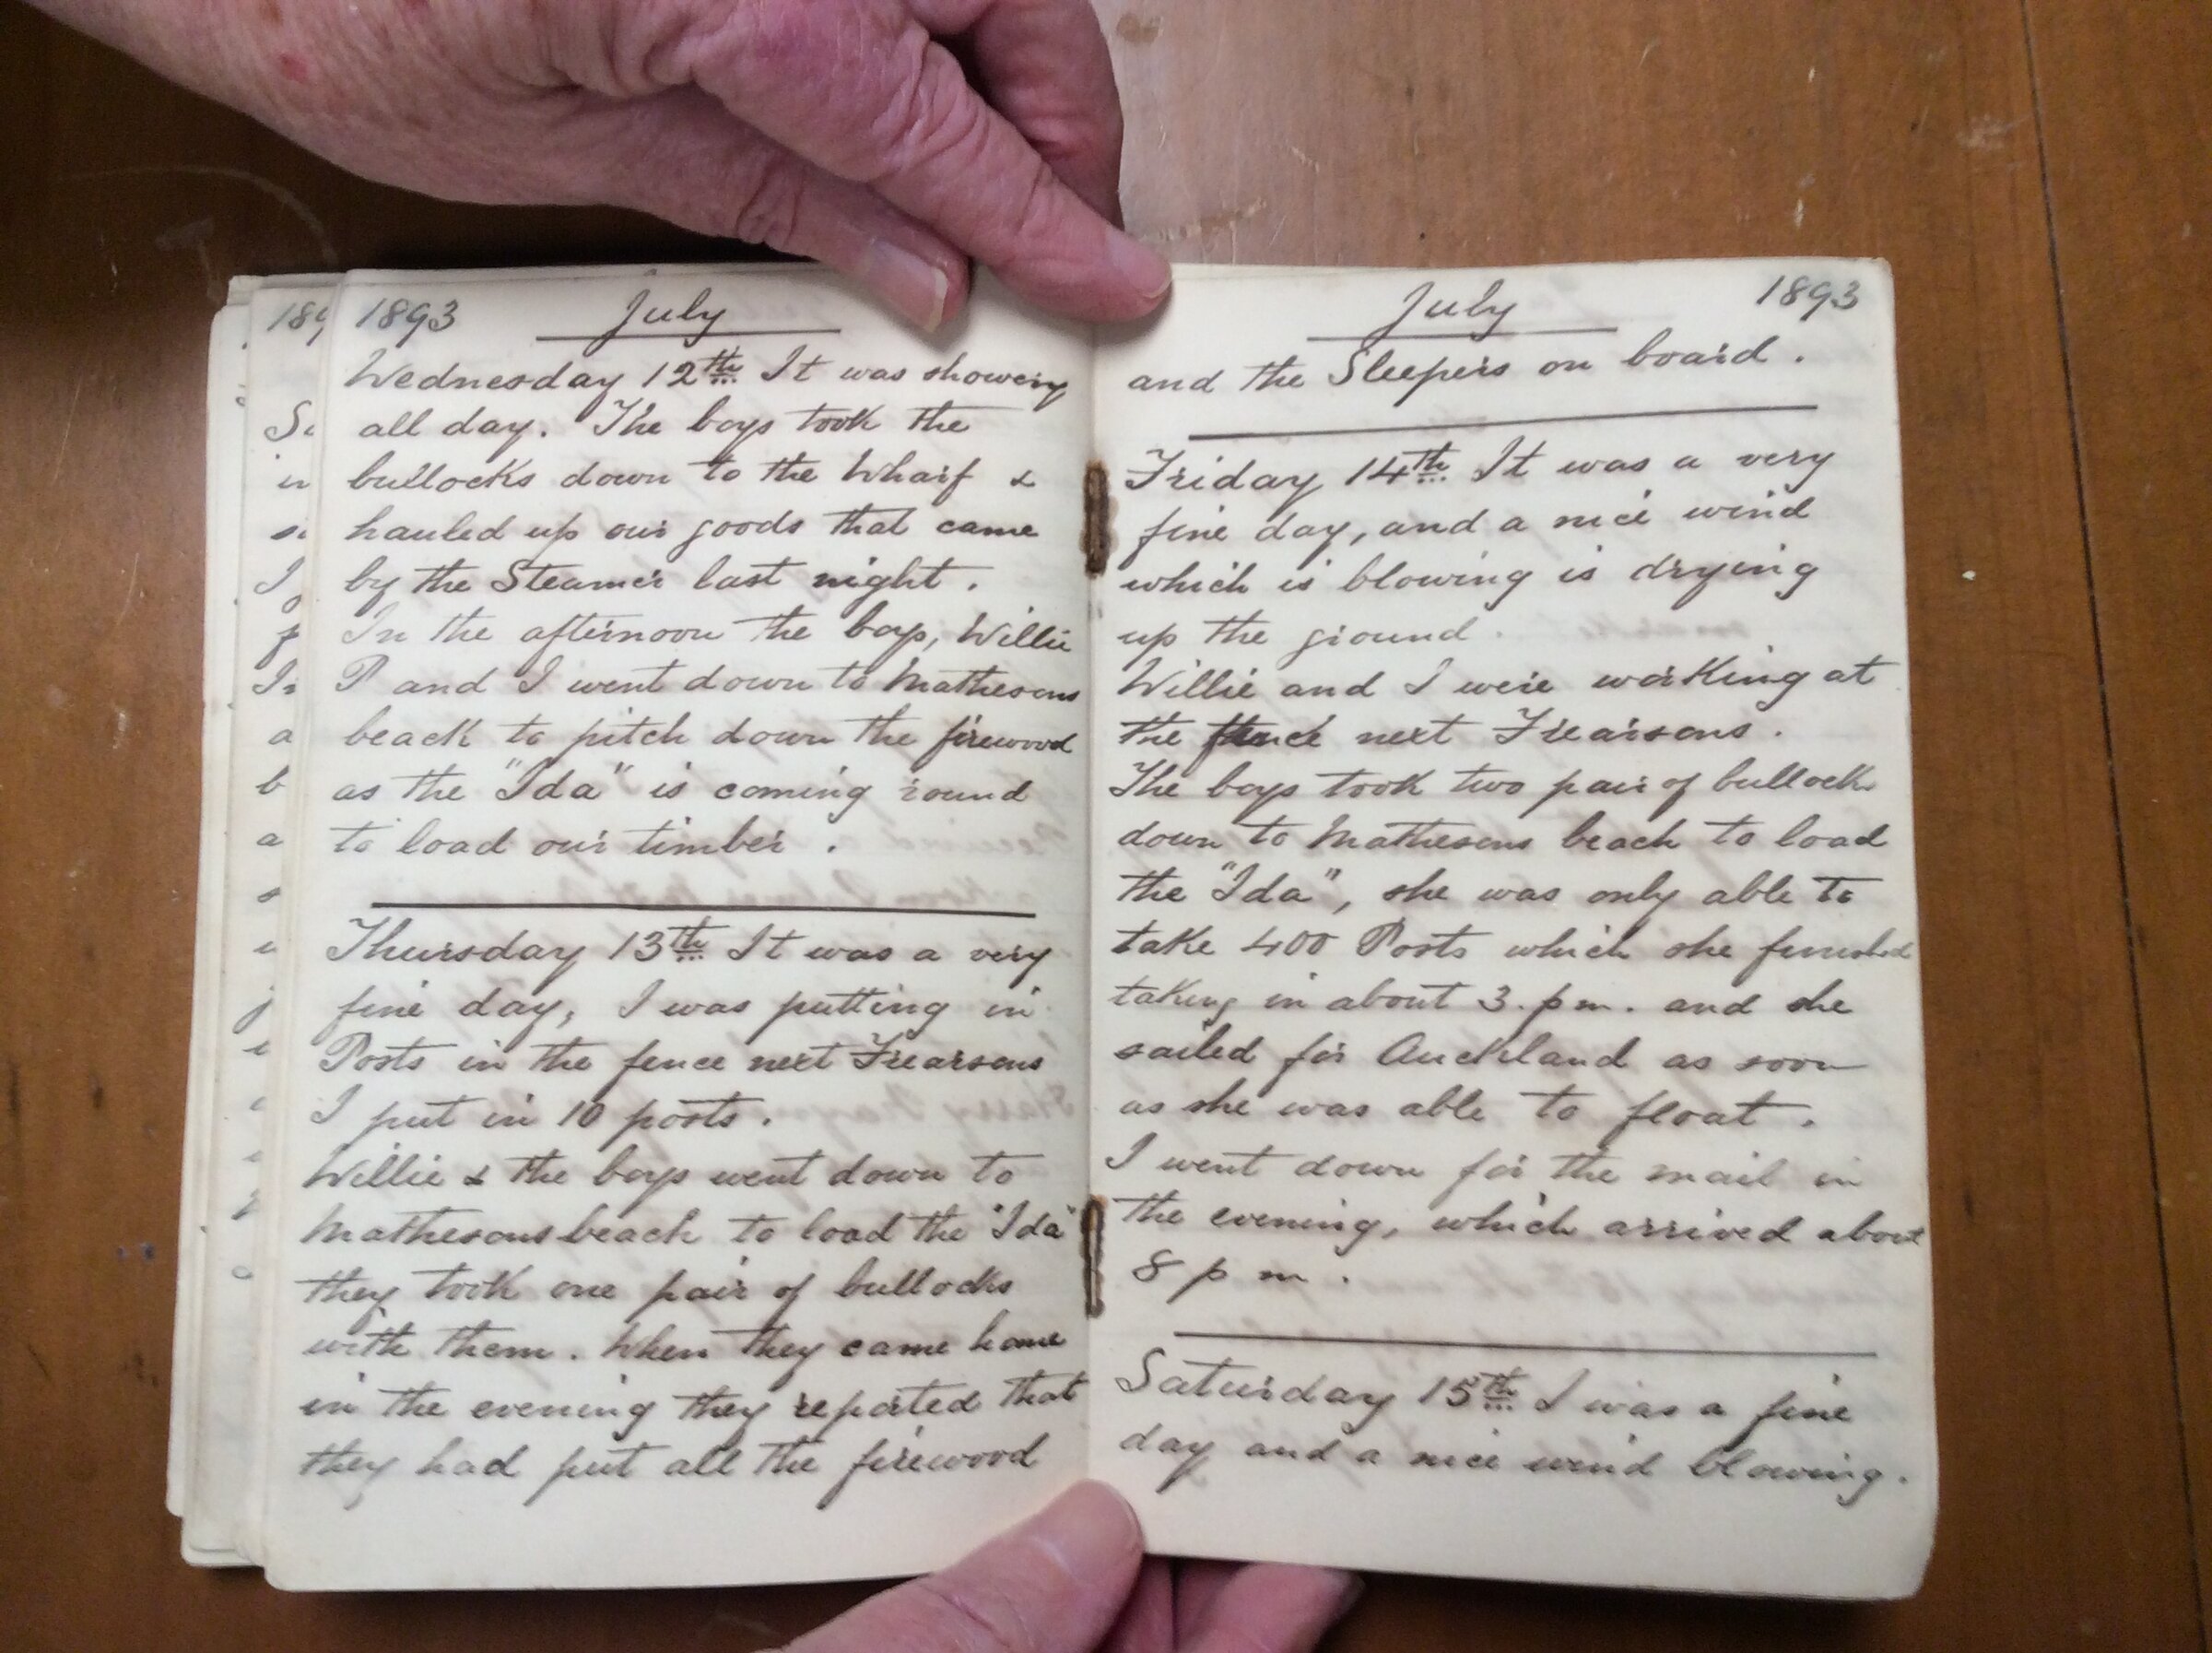 1893 July
Wednesday 12th It was showery
all day. The boys took the
bullocks down to the Wharf &
hauled up our goods that came
by the Steamer last night.
In the afternoon the boys, Willie
P and I went down to Mathesons
beach to pitch down the firewood
as the "Ida" is coming round
to load our timber.
Thursday 13th It was a very
fine day, I was putting in
Posts in the fence next Frearsons
I put in 10 posts.
Willie & the boys went down to
Mathesons beach to load the "Ida"
they took one pair of bullocks
with them. When they came home
in the evening they reported that
they had put all the firewood
July 1893
and the Sleepers on board.
Friday 14th It was a very
fine day, and a nice wind
which is blowing is drying
up the ground.
Willie and I were working at
the fence next Frearsons.
The boys took two pair of bullock
down to Mathesons beach to load
the "Ida", she was only able to
take 400 Posts which she finished
taking in about 3. pm. and she
sailed for Auckland as soon
as she was able to float.
I went down for the mail in
the evening, which arrived about
8 pm.
Saturday 15th I was a fine
day and a nice wind blowing.